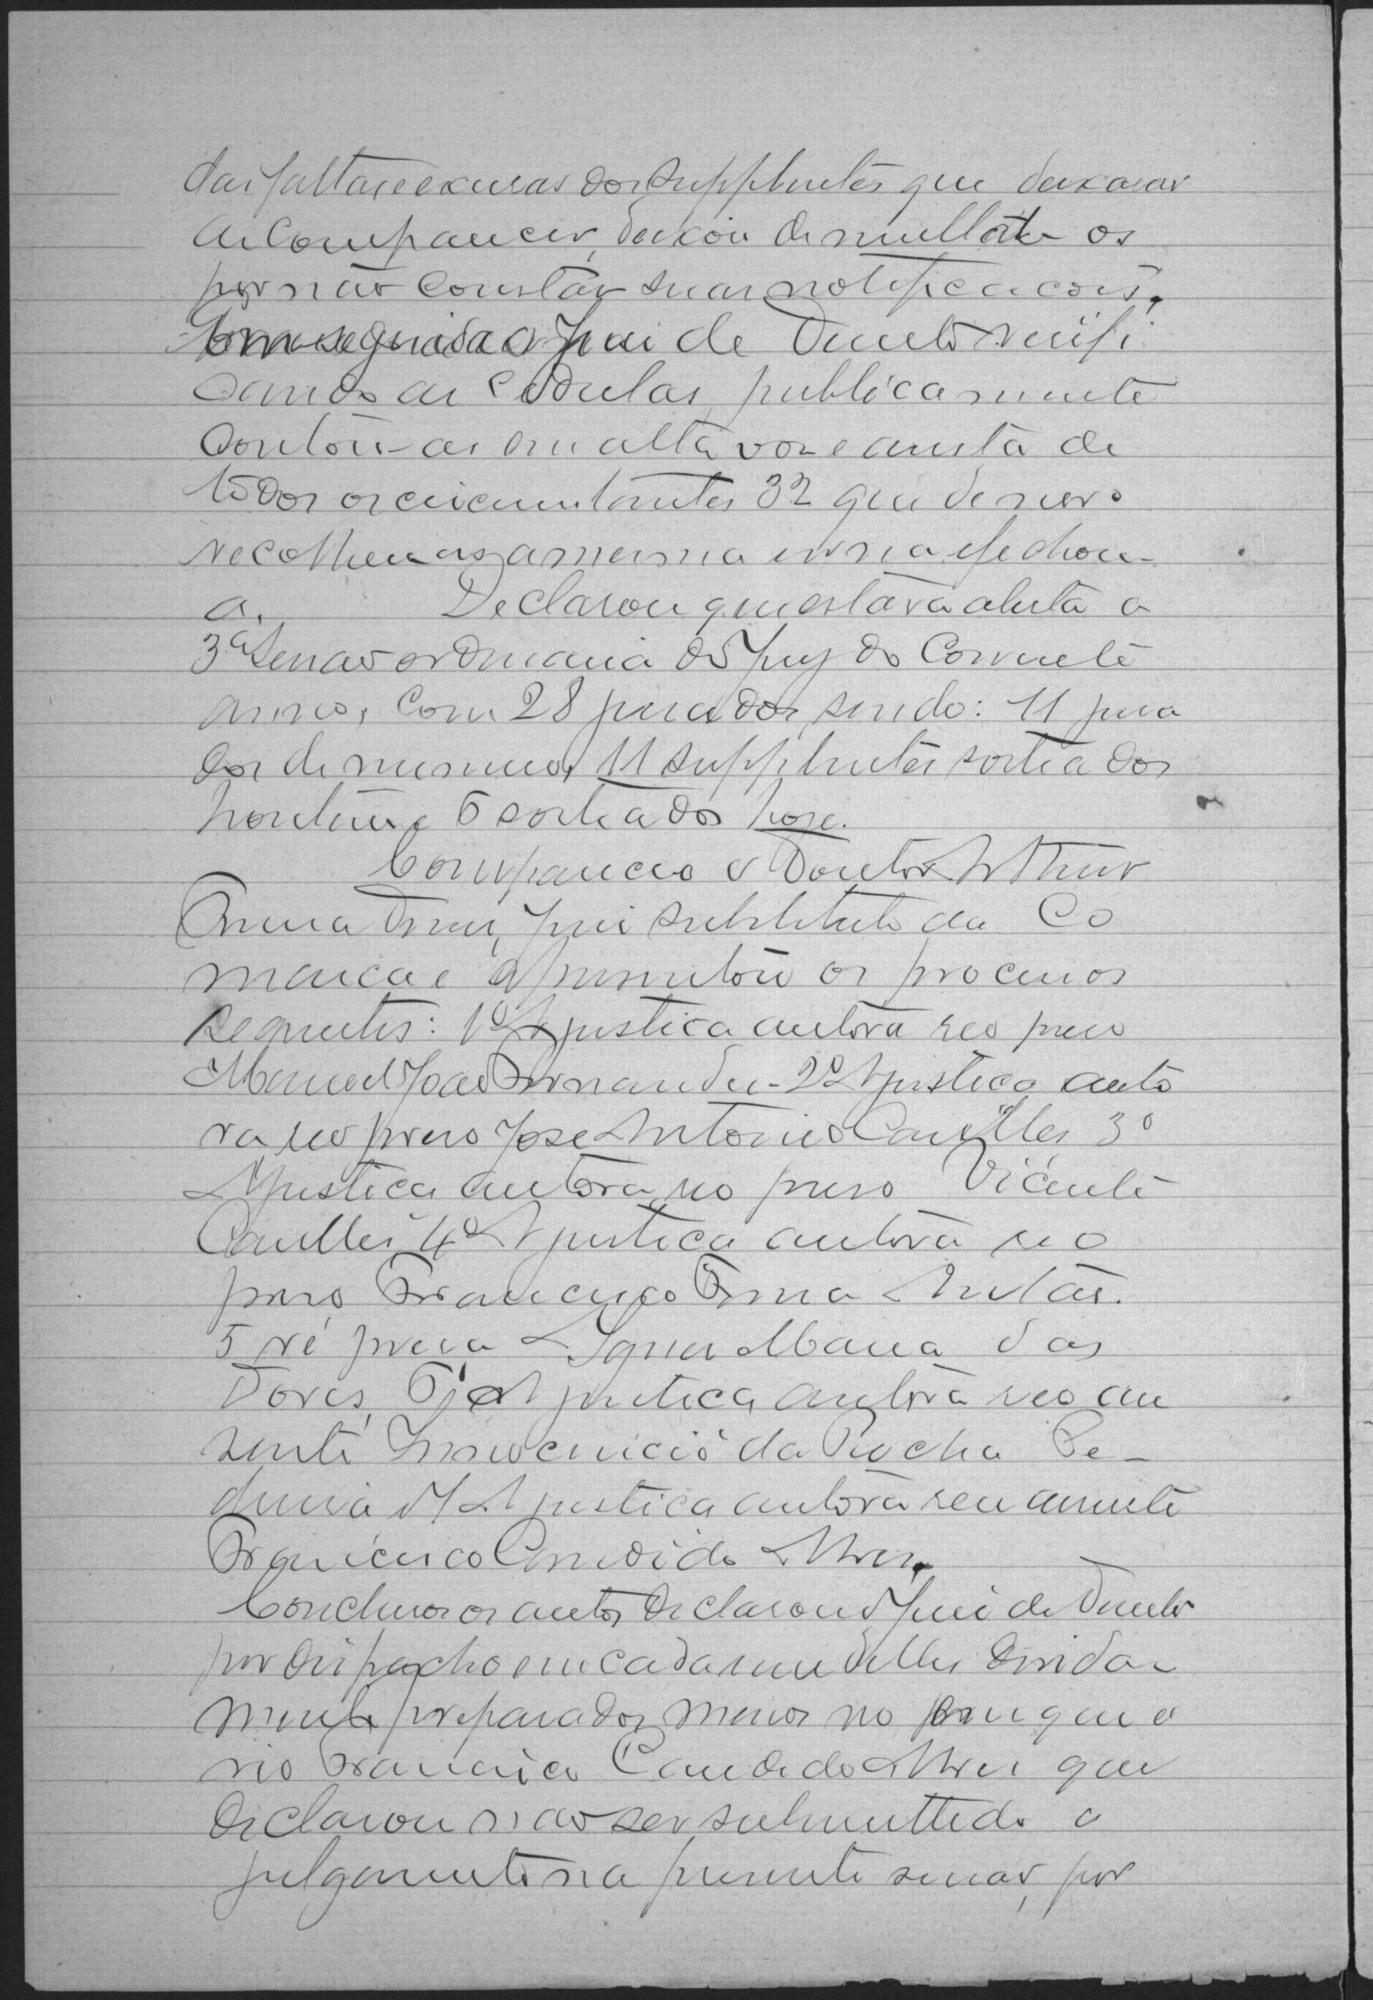 das faltas e excusas dos supplentes que deixarar
de Comparecer, deixou de multal-os
por não constar suas notificacoes.
Em seguida o Juiz de Direito verifi
cando as cedulas, publicamente
contou-as em alta voz e a vista de
todos os circumstantes 32 que de novo
recolheu as a mesma urna e fechou-
a. Declarou que estava aberta a
3ª Sessão ordinaria do Jury do Corrente
anno, com 28 jurados, sendo: 11 jura
dos de numero, 11 supplentes sorteados
hontem e 6 sorteados hoje.
Compareceo o Doutor Arthur
juiz substituto da Co
marca e apresentou os processos
seguintes: 1º A justica autora reo preso
Manoel João Fernandes - 2º A justica auto
ra, reo preso Jose Antonio Carilles, 3º
A justica autora, reo preso Vicente
4º A justica autora reo
preso Francisco
5 ré presa Ignes Maria das
Dores, 6º A justica autora reo au
sente Innocencio da Rocha Pe-
A justica autora reu ausente
Francisco Candido Alves.
Conclusos os autos declarou o Juiz de Direito
por despacho em cada um delles devida-
mente preparados, menos no em que o
réo Francisco Candido Alves que
declarou não ser submettido a
julgamento na presente sessão, por